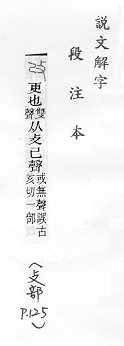 說文解字
段注本
更也雙聲从攴己聲或無聲誤古亥切一部
（攴部P.125）